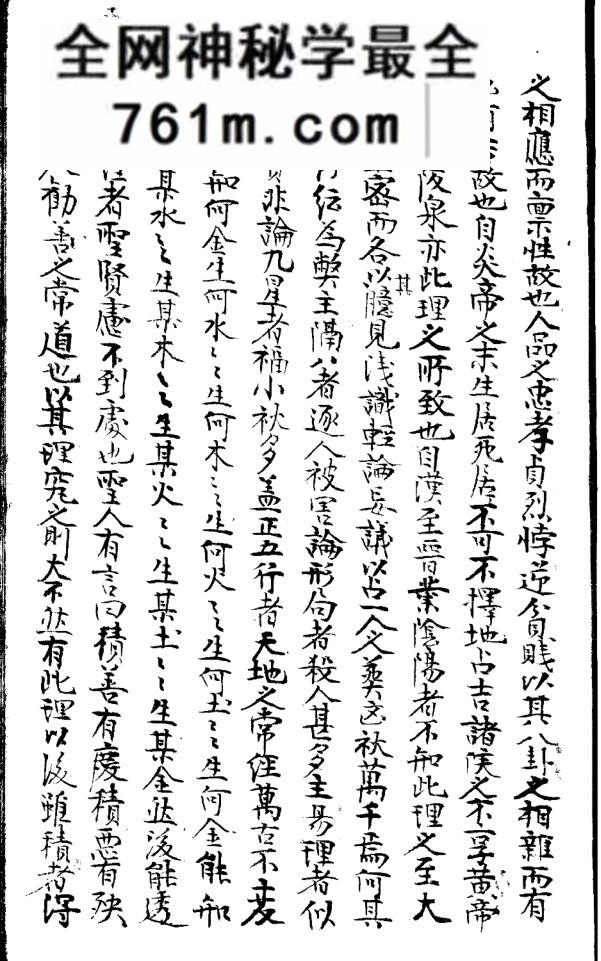 全网神秘学最全
761m.com
之相應而稟性故也人品之忠孝貞烈悖逆貧賤以其八卦之相雜而有
故也自炎帝之末生居死居不可不擇地占吉諸侯之不一孚黃帝
阪泉亦此理之所致也自漢至晉業陰陽者不知此理之至大
密而各以其臆見浅識輕論妄議以占一人之葬凶禍萬千焉何其
行纭為弊主隔八者逐人被害論形局者殺人甚多主易理者似
非論九星者福小禍多盖正五行者天地之常経萬古不變
知何金生何水〻生何木〻生何火〻生何土〻生何金能知
某水〻生某木〻生某火〻生某土〻生某金然後能透
者聖賢慮不到處也聖人有言曰積善有慶積悪有殃
勸善之常道也以其理究之則大不然有此理以後雖積者淂